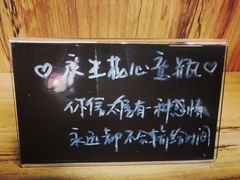 ♡永生花心意瓶♡
你信不信有一种恐怖
永远都不会输给时间